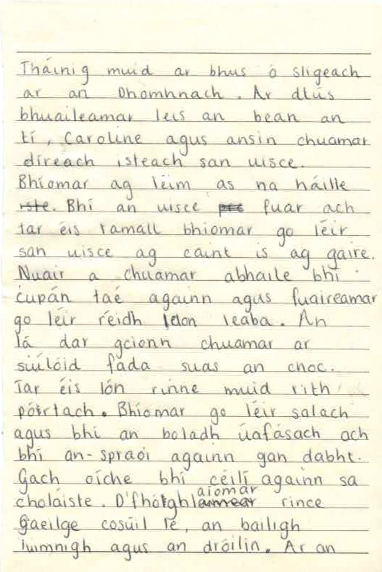 Tháinig muid ar bhus ó sligeach
ar an Dhomhnach. Ar dtús
bhuaileamar leis an bean an
tí, Caroline agus ansin chuamar
díreach isteach san uisce.
Bhíomar ag léim as na háille
iste. Bhí an uisce fuar ach
tar éis tamall bhíomar go léir
san uisce ag caint is ag gaire.
Nuair a chuamar abhaile bhí
cupán taé againn agus fuaireamar
go léir réidh don leaba. An
lá dar gcionn chuamar ar
siúlóid fada suas an cnoc.
Tar éis lón rinne muid rith
pórtach. Bhíomar go léir salach
agus bhí an boladh úafásach ach
bhí an-spraoi againn gan dabht.
Gach oíche bhí céilí againn sa
choláiste. D'fhoghlaíomar rince
Gaeilge cosúil le, an bailigh
luimnigh agus an dróilín. Ar an